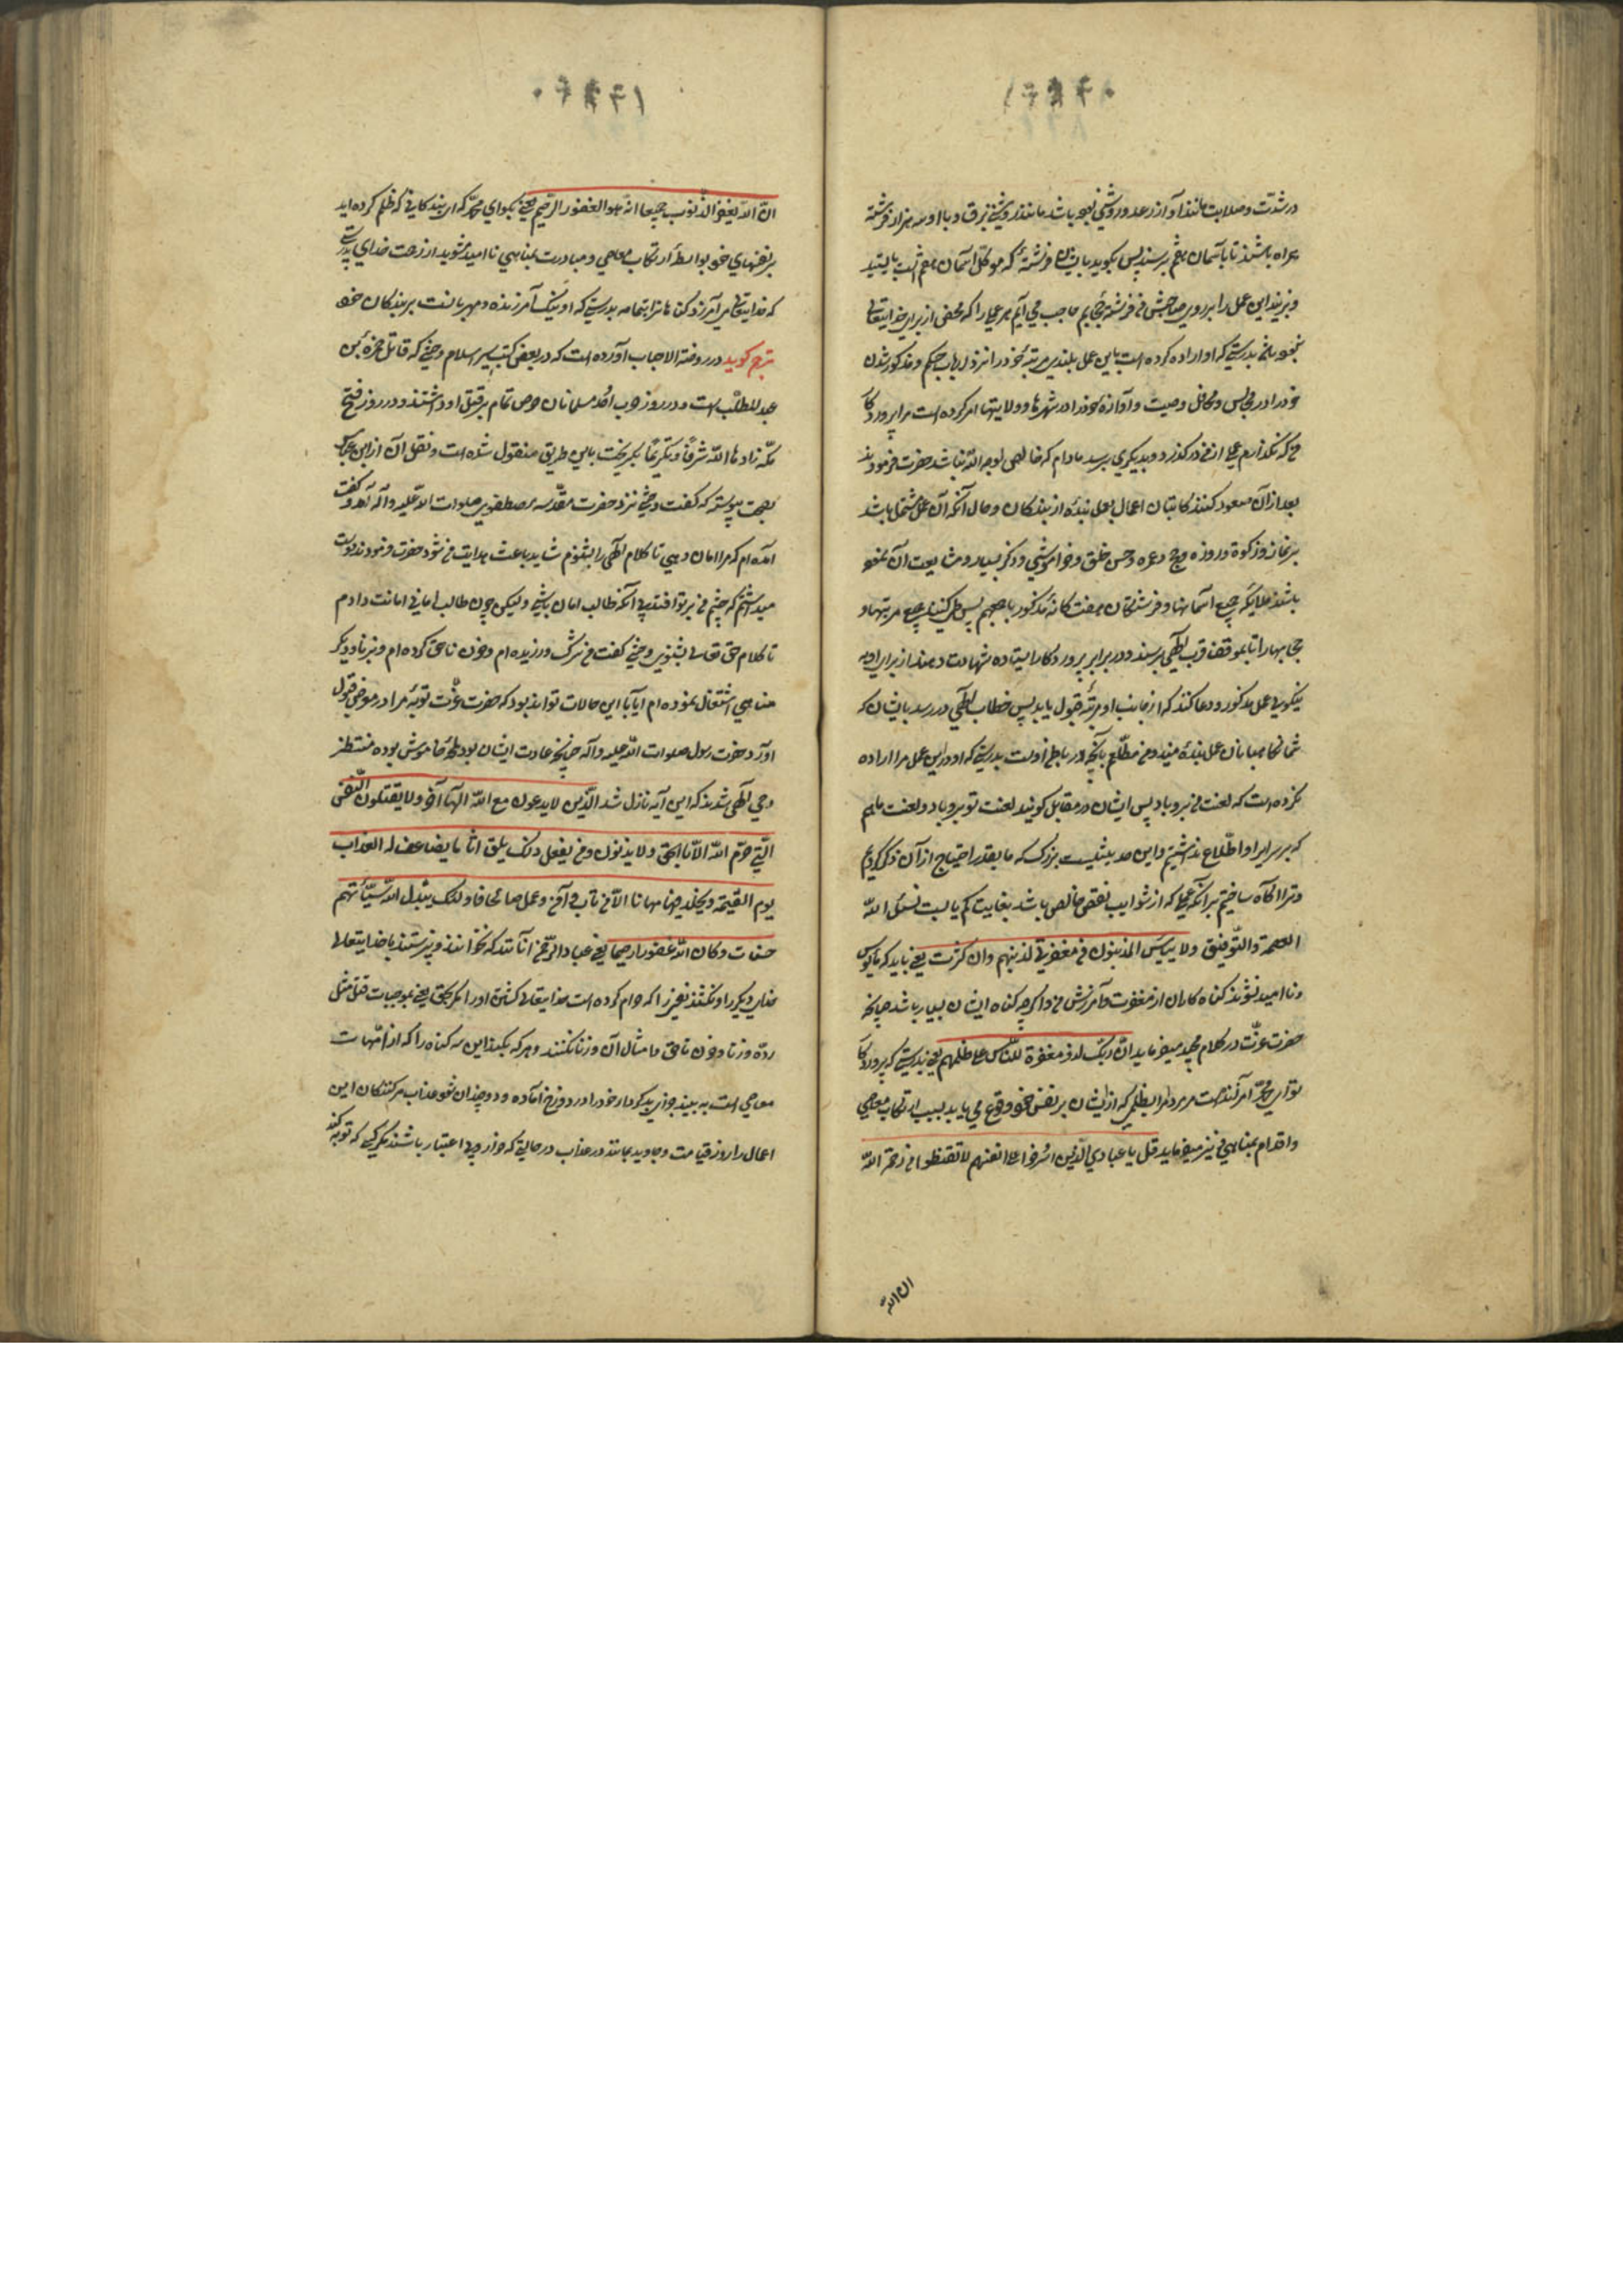 در شدّت و صلابت مانند آواز رعد و روشنی بوده باشد مانند روشنی برق و با او سه هزار فرشته
همراه باشند تا بآسمان هفتم برسند پس بگوید بایشان فرشتهٔ که موکل آسمان هفتم است بایستید
و بزنید این عمل را بر روی صاحبش من فرشتهٔ حجابم حاجب می آیم هر عملی را که محض از برای خدایتعالی
نبوده باشد بدرستی که او اراده کرده است باین عمل بلندی مرتبهٔ خود را نزد ارباب حکم و مذکور شدن
خود را در مجالس و محافل و صیت و آوازهٔ خود را در شهرها و ولایتها امر کرده است مرا پروردگار
من که نگذارم عملی از من درگذرد و بدیگری برسد مادام که خالص لوجه الله نباشد حضرت فرمودند
بعد از آن صعود کنند کاتبان اعمال بعمل بندهٔ از بندگان و حال آنکه آن عمل مشتمل باشد
بر نماز و زکوة و روزه و حج و عمره و حسن خلق و خاموشی و ذکر بسیار و مشایعت آن نموده
باشند ملایکه جمیع آسمانها و فرشتگان هفت کانهٔ مذکور باجمعهم پس طی کنند جمیع مرتبها و
حجابها را تا بموقف قرب الهی برسند و در برابر پروردگار ایستاده شهادت دهند از برای او به
نیکویی عمل مذکور و دعا کنند که از جانب او مرتبهٔ قبول یابد پس خطاب الهی در رسد بایشان که
شما نگاهبانان عمل بندهٔ منید و من مطّلعم بآنچه در باطن اوست بدرستی که او در این عمل مرا اراده
نکرده است که لعنت من برو باد پس ایشان در مقابل گویند لعنت تو برو باد و لعنت ما هم
که بر سرایر او اطّلاع نداشتیم و این حدیثیست بزرگ که ما بقدر احتیاج از آن ذکر کردیم
و ترا آگاه ساختیم بر آنکه عملی که از شوایب نقص خالص باشد بغایت کم یابست نسئل الله
العصمة و التّوفیق ولا ییأس المذنبون من مغفرتی لذنبهم وان کثرت یعنی باید که مأیوس
و ناامید نشوند گناه کاران از مغفرت و آمرزش من و اگرچه گناه ایشان بسیار باشد چنانچه
حضرت عزّت در کلام مجید میفرماید انّ ربّک لذو مغفرة للنّاس علی ظلمهم یعنی بدرستی که پروردگار
تو ای محمّد آمرزنده است مر مردم را بظلمی که از ایشان بر نفس خود وقوع می یابد بسبب ارتکاب معاصی
و اقدام بمناهی و نیز میفرماید قل یا عبادی الّذین اسرفوا علی انفسهم لا تقنطوا من رحمة الله
ان الله
انّ الله یغفر الذّنوب جمیعا انّه هو الغفور الرّحیم یعنی بگو ای محمّد که ای بندگان من که ظلم کرده اید
بر نفسهای خود بواسطهٔ ارتکاب معاصی و مبادرت بمناهی ناامید مشوید از رحمت خدای بدرستی
که خدایتعالی می آمرزد گناهان را بتمامه بدرستی که او نیک آمرزنده و مهربانست بر بندگان خود
مترجم گوید در روضة الاحباب آورده است که در بعضی کتب سیر اسلام وحشی که قاتل حمزة بن
عبد المطلّب است و در روز حرب احُد مسلمانان حرص تمام بر قتل او داشتند و در روز فتح
مکّه زادها الله شرفًا و تکریمًا بگریخت باین طریق منقول شده است و نقل آن از ابن عبّاس
بصحت پیوسته که گفت وحشی نزد حضرت مقدّسه مصطفوی صلوات الله علیه وآله آمد و گفت
آمده ام که مرا امان دهی تا کلام الهی را بشنوم شاید باعث هدایت من شود حضرت فرمودند دوست
میداشتم که چشم من بر تو افتد پی آنکه طالب امان باشی ولیکن چون طالب امانی امانت دادم
تا کلام حق تعالی بشنوی وحشی گفت من شرک ورزیده ام و خون ناحق کرده ام و بزنا و دیگر
مناهی اشتغال نموده ام آیا با این حالات تواند بود که حضرت عزّت توبهٔ مرا در معرض قبول
آورد حضرت رسول صلوات الله علیه وآله چنانچه عادت ایشان بود لحظهٔ خاموش بوده منتظر
وحی الهی شدند که این آیه نازل شد الّذین لا یدعون مع الله الهًا آخر ولا یقتلون النّفس
الّتی حرّم الله الّا بالحق ولا یزنون ومن یفعل ذلک یلق اثاما یضاعف له العذاب
یوم القیمة ویخلد فیها مهانا الّا من تاب وآمن وعمل صالحا فاولئک یبدّل الله سیّئاتهم
حسنات وکان الله غفورا رحیما یعنی عباد الرّحمن آنانند که نخوانند و نپرستند با خدایتعالی
خدای دیگر را و نکشند نفسی را که حرام کرده است خدایتعالی کشتن او را مگر بحق یعنی بموجبات قتل مثل
ردّه و زنا و خون ناحق و امثال آن و زنا نکنند و هر که بکند این سه گناه را که از امّهات
معاصی است به بیند جزای بد کردار خود را در دوزخ آماده و دو چندان شود عذاب مر کنندگان این
اعمال را روز قیامت و جاوید بمانند در عذاب در حالتی که خوار و بی اعتبار باشند مگر کسی که توبه کند